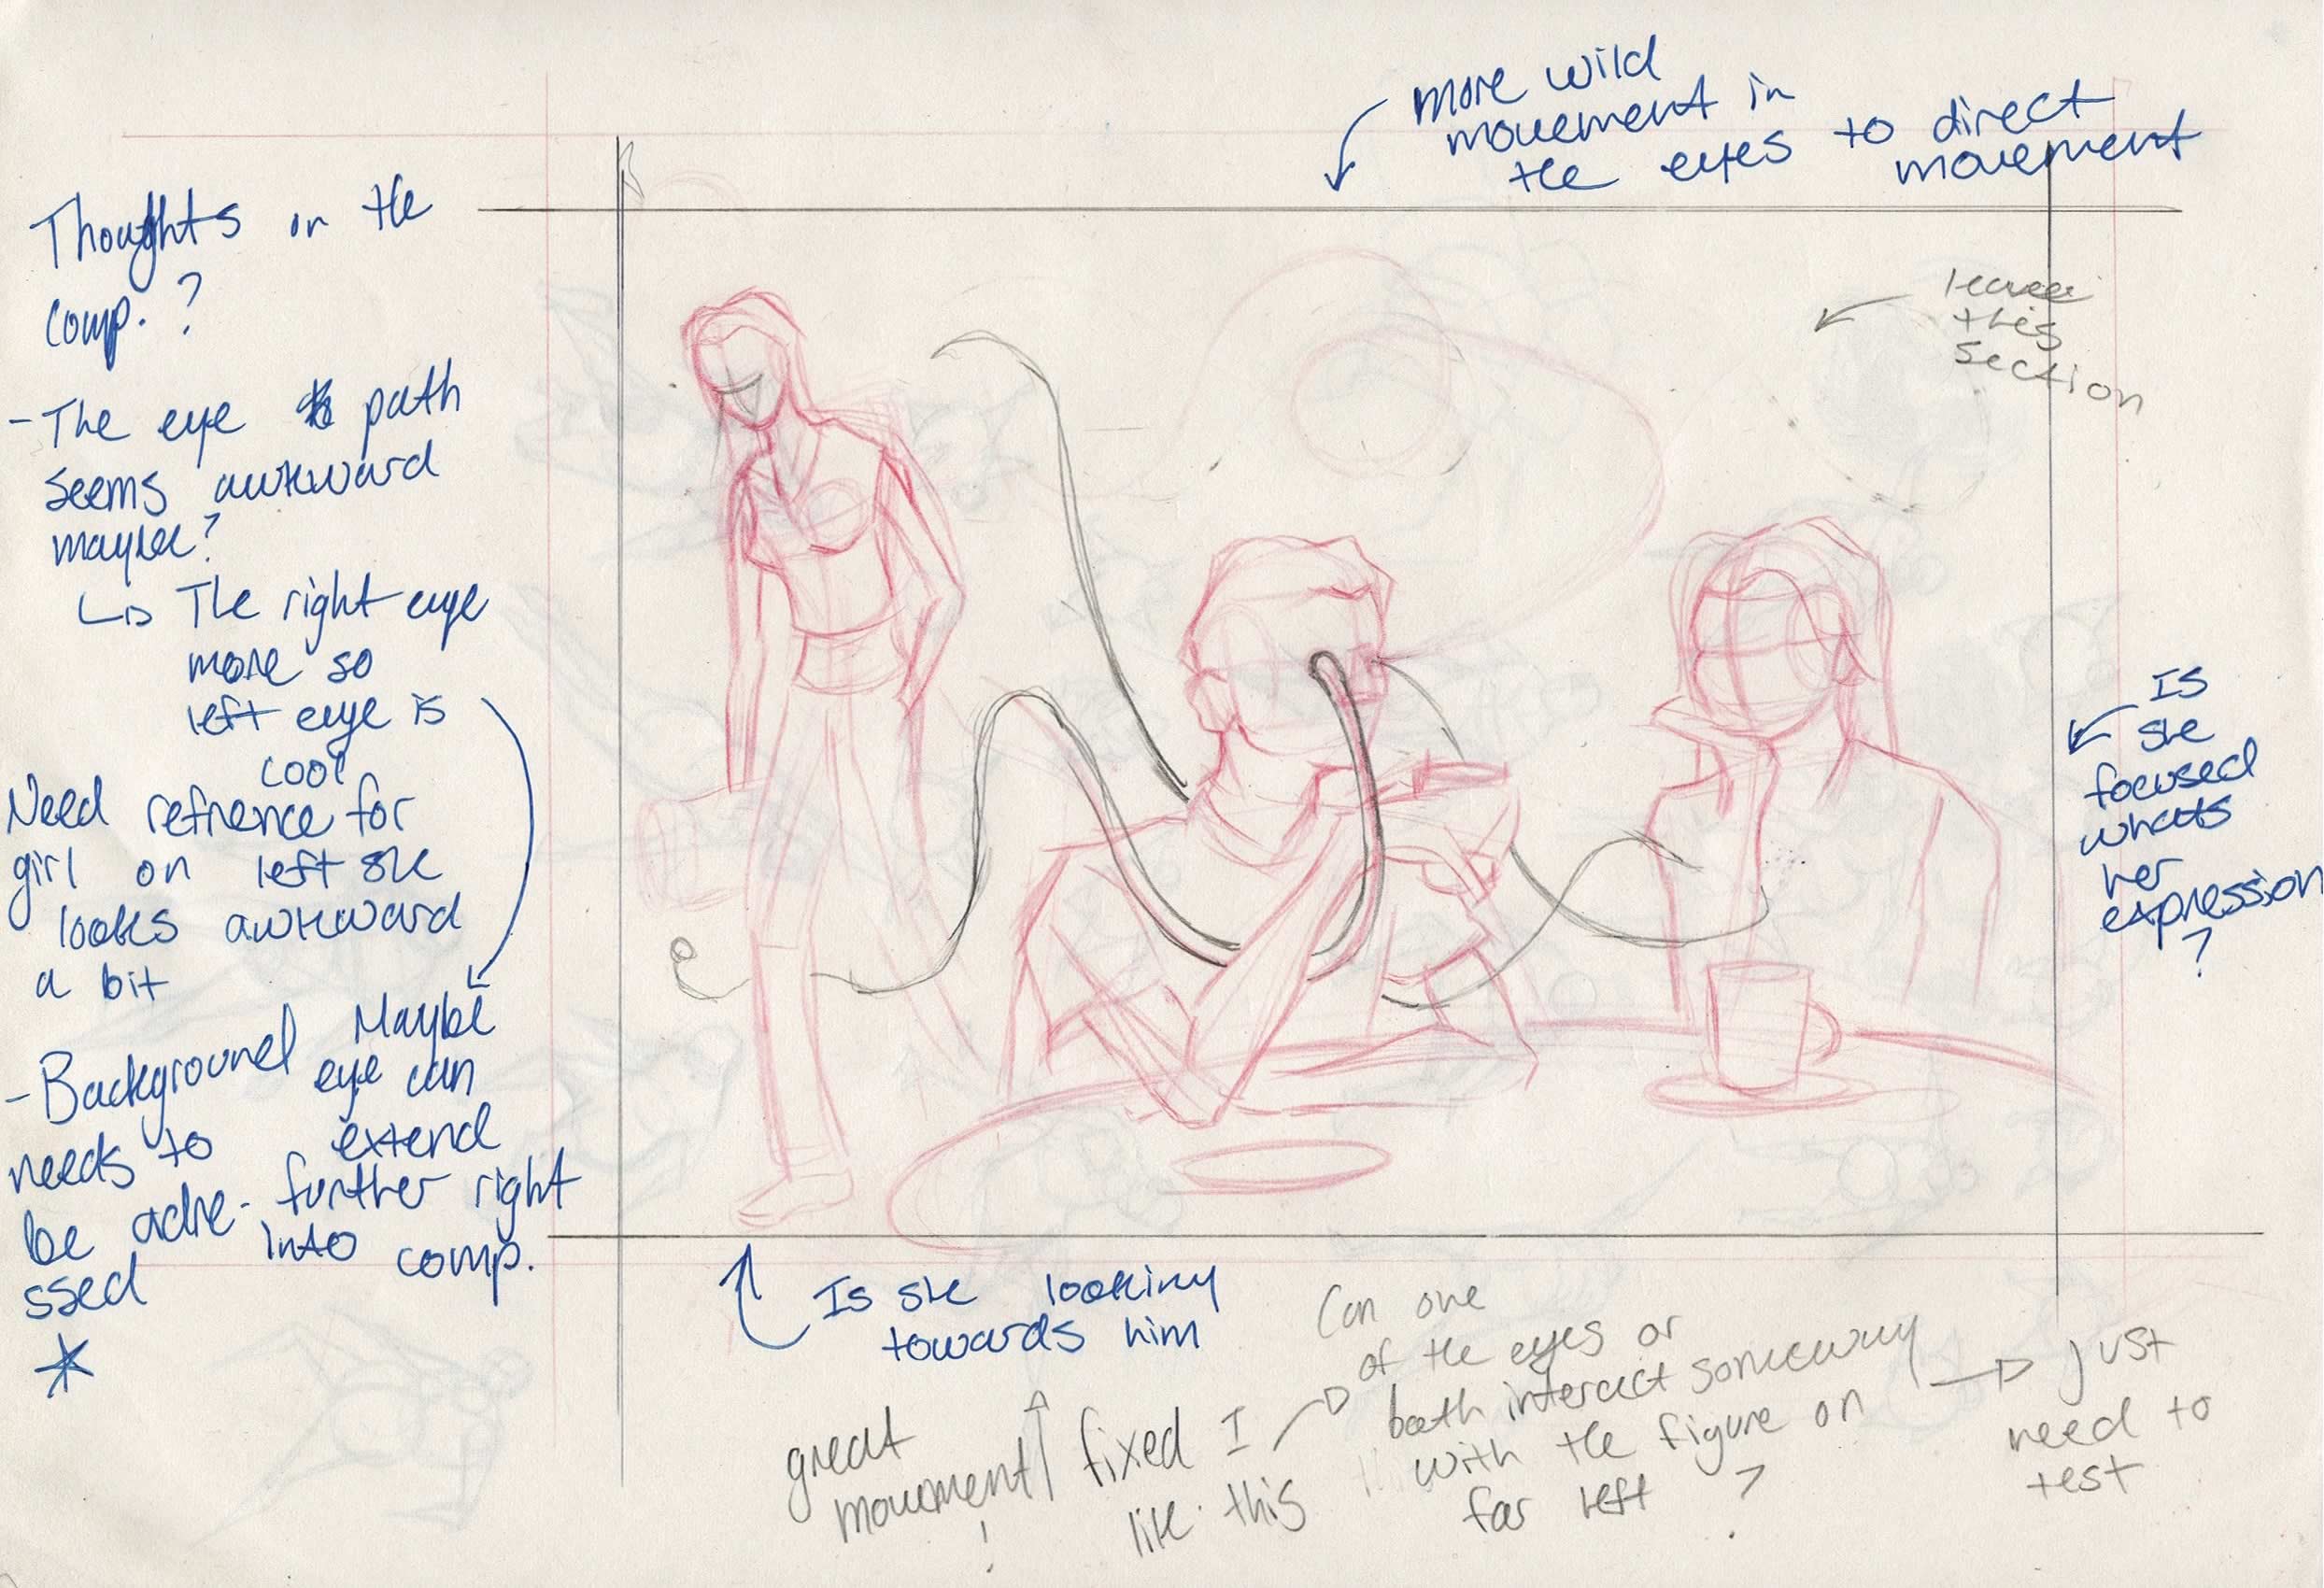 more wild
movement in
the eyes to direct
movement
leave
this
section
Thoughts on the
comp. ?
- The eye path
seems awkward
maybe?
The right eye
more so
left eye is
cool
Need refrence for
girl on left she
looks awkward
a bit
Maybe
eye can
extend
further right
into comp.
- Background
needs to
be adre-
ssed
Is
she
focused
whats
her
expression
?
Is she looking
towards him
great
movment
!
fixed I
like this
Can one
of the eyes or
both interact someway
with the figure on
far left ?
Just
need to
test